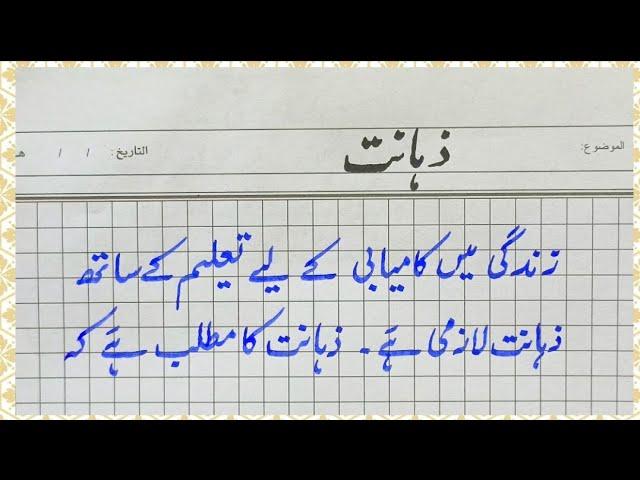 الموضوع:
ذہانت
التاريخ: / / هـ
زندگی میں کامیابی کے لیے تعلیم کے ساتھ
ذہانت لازمی ہے۔ ذہانت کا مطلب ہے کہ